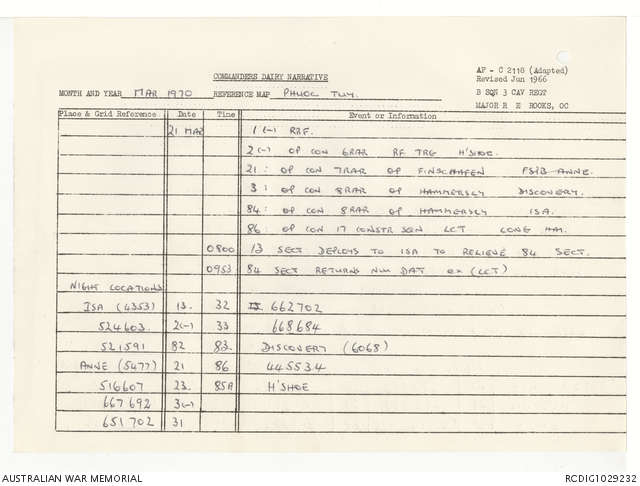 COMMANDERS DAIRY NARRATIVE
AF - C 2118 (Adapted)
Revised Jun 1966
MONTH AND YEAR MAR 1970 REFERENCE MAP PHUOC TUY. B SQN 3 CAV REGT
MAJOR R E ROOKS, OC
Place & Grid Reference Date Time Event or Information
21 MAR 1 (-) RRF.
2(-) OP CON 6RAR RF TRG H'SHOE.
21: OP CON 7RAR OP FINSCHAFEN FSPB ANNE.
3: OP CON 8RAR OP HAMMERSLY DISCOVERY.
84: OP CON 8RAR OP HAMMERSLY ISA.
86: OP CON 17 CONSTR SQN LCT LONG HAI.
0800 13 SECT DEPLOYS TO ISA TO RELIEVE 84 SECT.
0953 84 SECT RETURNS NUI DAT ex (LCT)
NIGHT LOCATIONS
ISA (4353) 13. 32 662702
524603. 2(-) 33 668684
521591 82 83. DISCOVERY (6068)
ANNE (5477) 21 86 445534
516607 23. 85A H'SHOE
667692 3(-)
651702 31
AUSTRALIAN WAR MEMORIAL RCDIG1029232